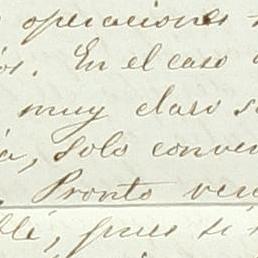 operaciones
os. En el caso
muy claro s
a, Solo conven
Pronto vere
blé, pues si